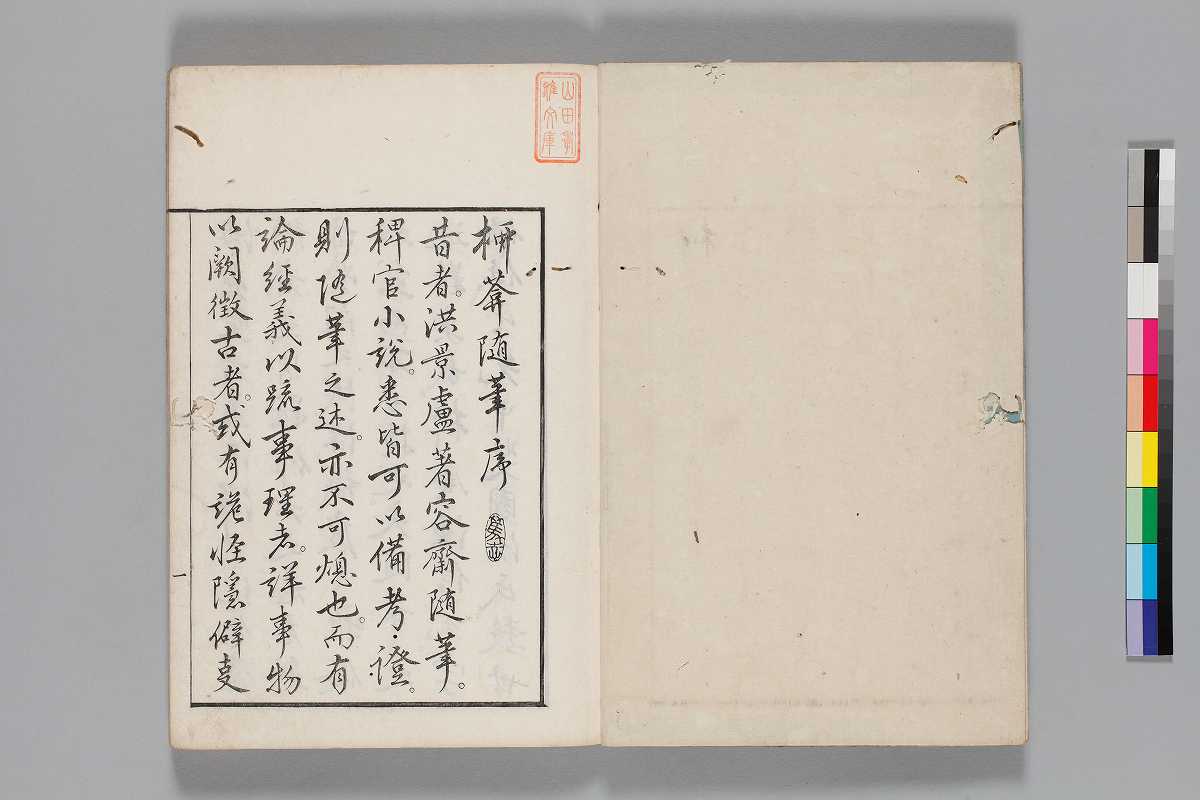 山田孝
雄文庫
桺葊随筆序
昔者。洪景盧著容齋随筆。
稗官小說。悉皆可以備考證。
則随筆之述。亦不可熄也。而有
論經義以疏事理者。詳事物
以闕徵古者。或有詭怪隱僻支
一